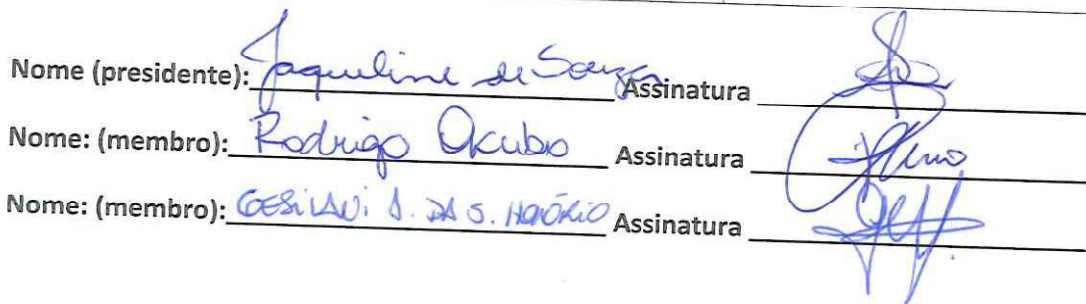 Nome (presidente): Jaqueline de Souza Assinatura
Nome: (membro): Rodrigo Okubo Assinatura
Nome: (membro): GESILANI A. DA S. HONÓRIO Assinatura